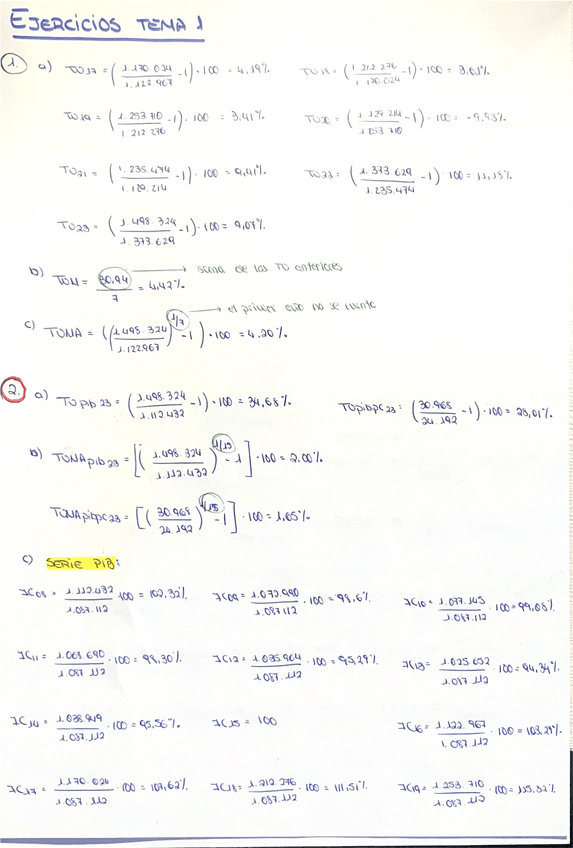 EJERCICIOS TEMA 1
1. a) TV17 = (1.170.024 / 1.122.967 - 1) · 100 = 4,19% TV18 = (1.212.276 / 1.170.024 - 1) · 100 = 3,61%
TV19 = (1.253.710 / 1.212.276 - 1) · 100 = 3,41% TV20 = (1.129.214 / 1.253.710 - 1) · 100 = -9,93%
TV21 = (1.235.474 / 1.129.214 - 1) · 100 = 9,41% TV22 = (1.373.629 / 1.235.474 - 1) · 100 = 11,18%
TV23 = (1.498.324 / 1.373.629 - 1) · 100 = 9,07%
b) TVM = 30,94 / 7 = 4,42% → suma de las TV anteriores
→ el primer año no se cuenta
c) TVMA = ((1.498.324 / 1.122.967)^1/7 - 1) · 100 = 4,20%
2. a) TVpib23 = (1.498.324 / 1.112.432 - 1) · 100 = 34,68% TVpibpc23 = (30.968 / 24.192 - 1) · 100 = 28,01%
b) TVMApib23 = [(1.498.324 / 1.112.432)^1/15 - 1] · 100 = 2,00%
TVMApibpc23 = [(30.968 / 24.192)^1/15 - 1] · 100 = 1,65%
c) SERIE PIB:
IC08 = 1.112.432 / 1.087.112 · 100 = 102,32% IC09 = 1.072.990 / 1.087.112 · 100 = 98,6% IC10 = 1.077.145 / 1.087.112 · 100 = 99,08%
IC11 = 1.068.690 / 1.087.112 · 100 = 98,30% IC12 = 1.035.964 / 1.087.112 · 100 = 95,29% IC13 = 1.025.652 / 1.087.112 · 100 = 94,34%
IC14 = 1.038.949 / 1.087.112 · 100 = 95,56% IC15 = 100 IC16 = 1.122.967 / 1.087.112 · 100 = 103,29%
IC17 = 1.170.024 / 1.087.112 · 100 = 107,62% IC18 = 1.212.276 / 1.087.112 · 100 = 111,51% IC19 = 1.253.710 / 1.087.112 · 100 = 115,32%